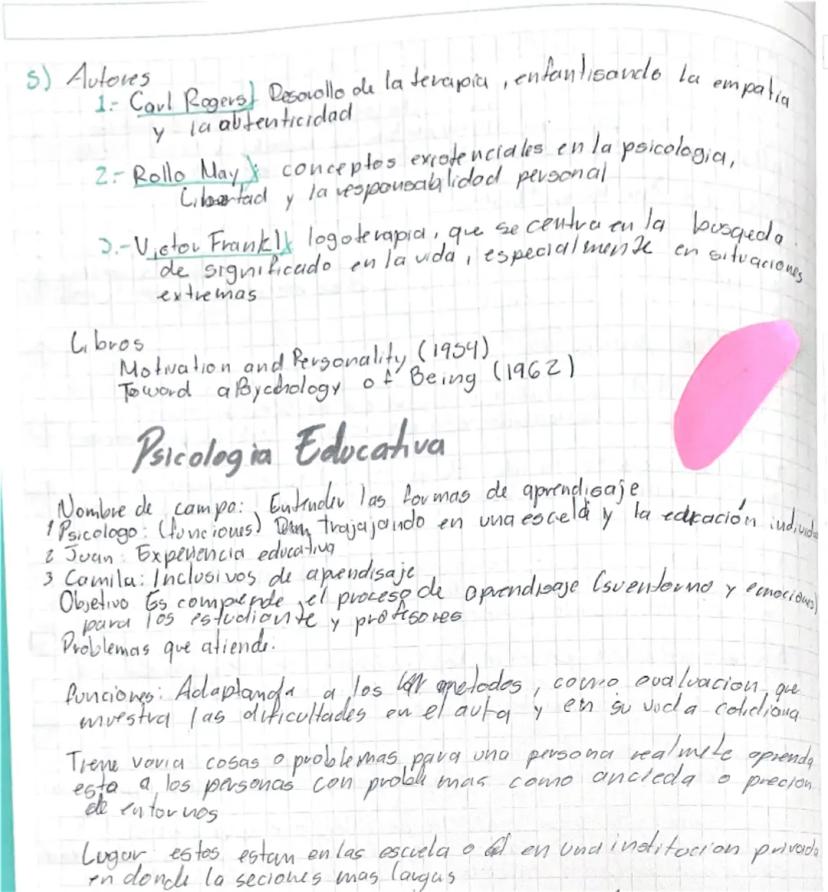 5) Autores
1.- Carl Rogers} Desarollo de la terapia, enfantisando la empatia
y la autenticidad
2.- Rollo May}: conceptos existenciales en la psicologia,
Libertad y la responsabilidad personal
3.- Victor Frankl} logoterapia, que se centra en la busqueda
de significado en la vida, especialmente en situaciones
extremas
Libros
Motivation and Personality (1954)
Toward a Psychology of Being (1962)
Psicologia Educativa
Nombre de campo: Entender las formas de aprendisaje
1 Psicologo: (funciones) trajajando en una escela y la educación individ
2 Juan: Experiencia educativa
3 Camila: Inclusivos de aprendisaje
Objetivo Es comprende el proceso de aprendisaje (su entorno y emociones)
para los estudiante y profesores
Problemas que atiende.
funciones: Adaptando a los metodos, como evaluacion, que
muestra las dificultades en el aula y en su vida cotidiana
Tiene varia cosas o problemas para una persona realmete aprenda
esta a los personas con problemas como ancieda o precion
de entornos
Lugar estos estan en las escuela o en una institucion privada
en donde la seciones mas largas